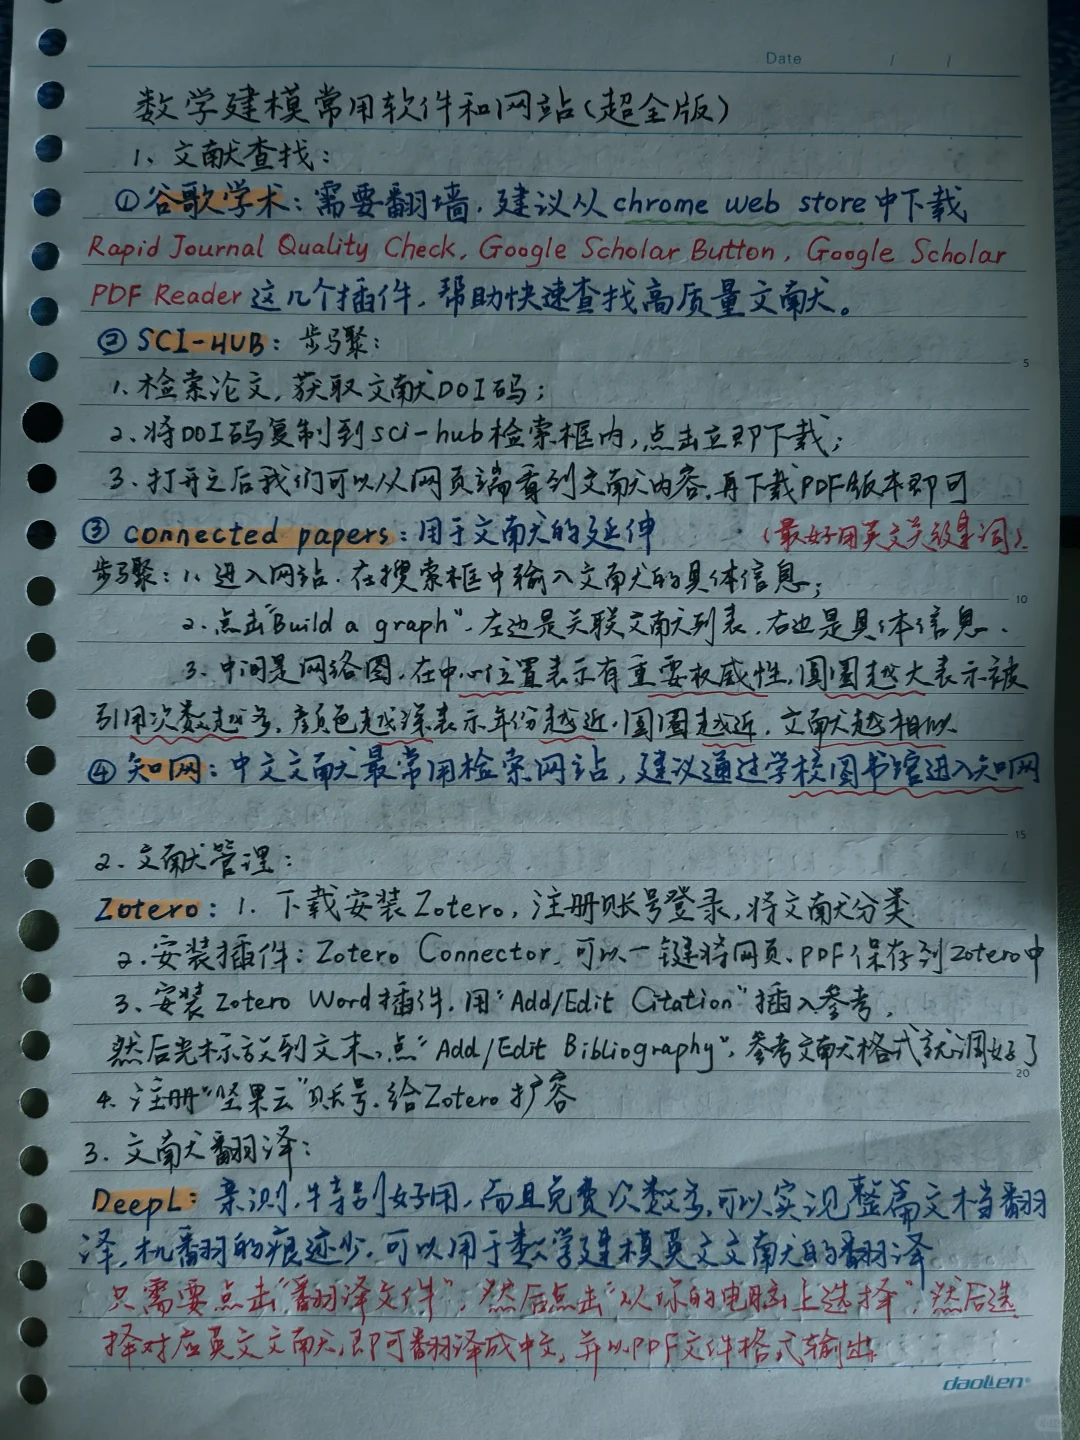 Date / /
数学建模常用软件和网站(超全版)
1、文献查找:
①谷歌学术:需要翻墙,建议从chrome web store中下载
Rapid Journal Quality Check, Google Scholar Button, Google Scholar
PDF Reader这几个插件,帮助快速查找高质量文献。
②SCI-HUB:步骤:
1、检索论文,获取文献DOI码;
2、将DOI码复制到sci-hub检索框内,点击立即下载;
3、打开之后我们可以从网页端看到文献内容,再下载PDF版本即可
5
③connected papers:用于文献的延伸 (最好用英文关键词)
步骤:1、进入网站,在搜索框中输入文献的具体信息;
10
2、点击"Build a graph",左边是关联文献列表,右边是具体信息、
3、中间是网络图,在中心位置表示有重要权威性,圆圈越大表示被
引用次数越多,颜色越深表示年份越近,圆圈越近,文献越相似
④知网:中文文献最常用检索网站,建议通过学校图书馆进入知网
15
2、文献管理:
Zotero:1、下载安装Zotero,注册账号登录,将文献分类
2、安装插件:Zotero Connector,可以一键将网页、PDF保存到Zotero中
3、安装Zotero Word插件,用"Add/Edit Citation"插入参考,
然后光标放到文末,点"Add/Edit Bibliography",参考文献格式就调好了
20
4、注册"坚果云"账号,给Zotero扩容
3、文献翻译:
DeepL:亲测,特别好用,而且免费次数多,可以实现整篇文档翻
译,机翻的痕迹少,可以用于数学建模英文文献的翻译
只需要点击"翻译文件",然后点击"从你的电脑上选择",然后选
择对应英文文献,即可翻译成中文,并以PDF文件格式输出
daolien